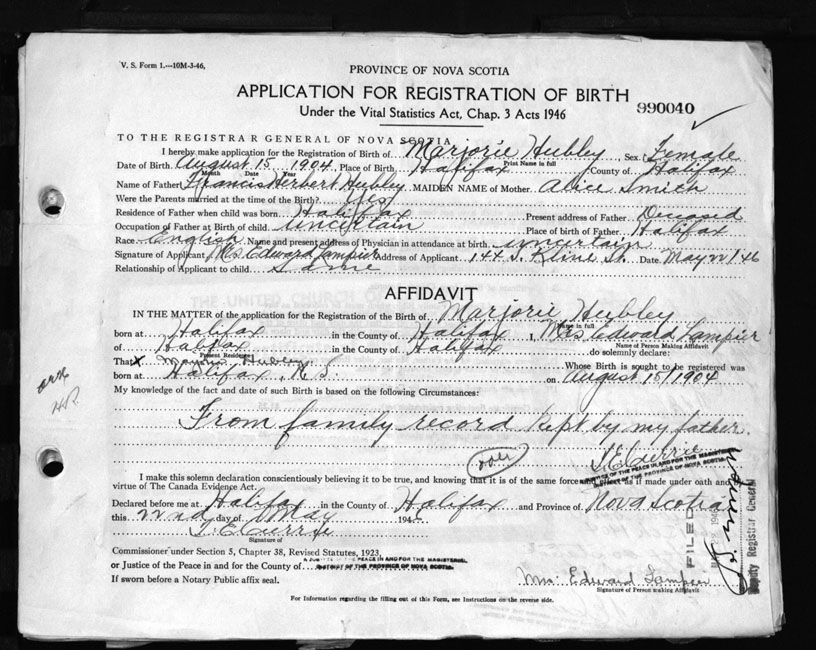 V. S. Form 1.—10M-3-46,
PROVINCE OF NOVA SCOTIA
APPLICATION FOR REGISTRATION OF BIRTH
990040
Under the Vital Statistics Act, Chap. 3 Acts 1946
TO THE REGISTRAR GENERAL OF NOVA SCOTIA
I hereby make application for the Registration of Birth of Marjorie Hubley, Sex: Female
Print Name in full
Date of Birth August 15, 1904 Place of Birth Halifax County of Halifax
Month Day Year
Name of Father Francis Herbert Hubley MAIDEN NAME of Mother Alice Smith
Were the Parents married at the time of the Birth? Yes
Residence of Father when child was born Halifax Present address of Father Deceased
Occupation of Father at Birth of child uncertain Place of birth of Father Halifax
Race English Name and present address of Physician in attendance at birth uncertain
Signature of Applicant Mrs Edward Lampier Address of Applicant 144 Kline St. Date May 22/46
Relationship of Applicant to child Same
AFFIDAVIT
IN THE MATTER of the application for the Registration of the Birth of Marjorie Hubley
Name in full
born at Halifax in the County of Halifax I, Mrs Edward Lampier
Name of Person Making Affidavit
of Halifax in the County of Halifax do solemnly declare:
Present Residence
That x Hubley Whose Birth is sought to be registered was
born at Halifax, N S. on August 15/1904
My knowledge of the fact and date of such Birth is based on the following Circumstances:
From family record kept by my father.
over
A JUSTICE OF THE PEACE IN AND FOR THE MAGISTERIAL
DISTRICT OF THE PROVINCE OF NOVA SCOTIA.
I make this solemn declaration conscientiously believing it to be true, and knowing that it is of the same force and effect as if made under oath and by
virtue of The Canada Evidence Act.
Declared before me at Halifax in the County of Halifax and Province of Nova Scotia
this 22nd day of May 194
Signature of
Commissioner under Section 5, Chapter 38, Revised Statutes, 1923,
or Justice of the Peace in and for the County of
A JUSTICE OF THE PEACE IN AND FOR THE MAGISTERIAL
DISTRICT OF THE PROVINCE OF NOVA SCOTIA.
If sworn before a Notary Public affix seal.
Mrs. Edward Lampier
Signature of Person making Affidavit
For Information regarding the filling out of this Form, see Instructions on the reverse side.
FILED
Deputy Registrar General